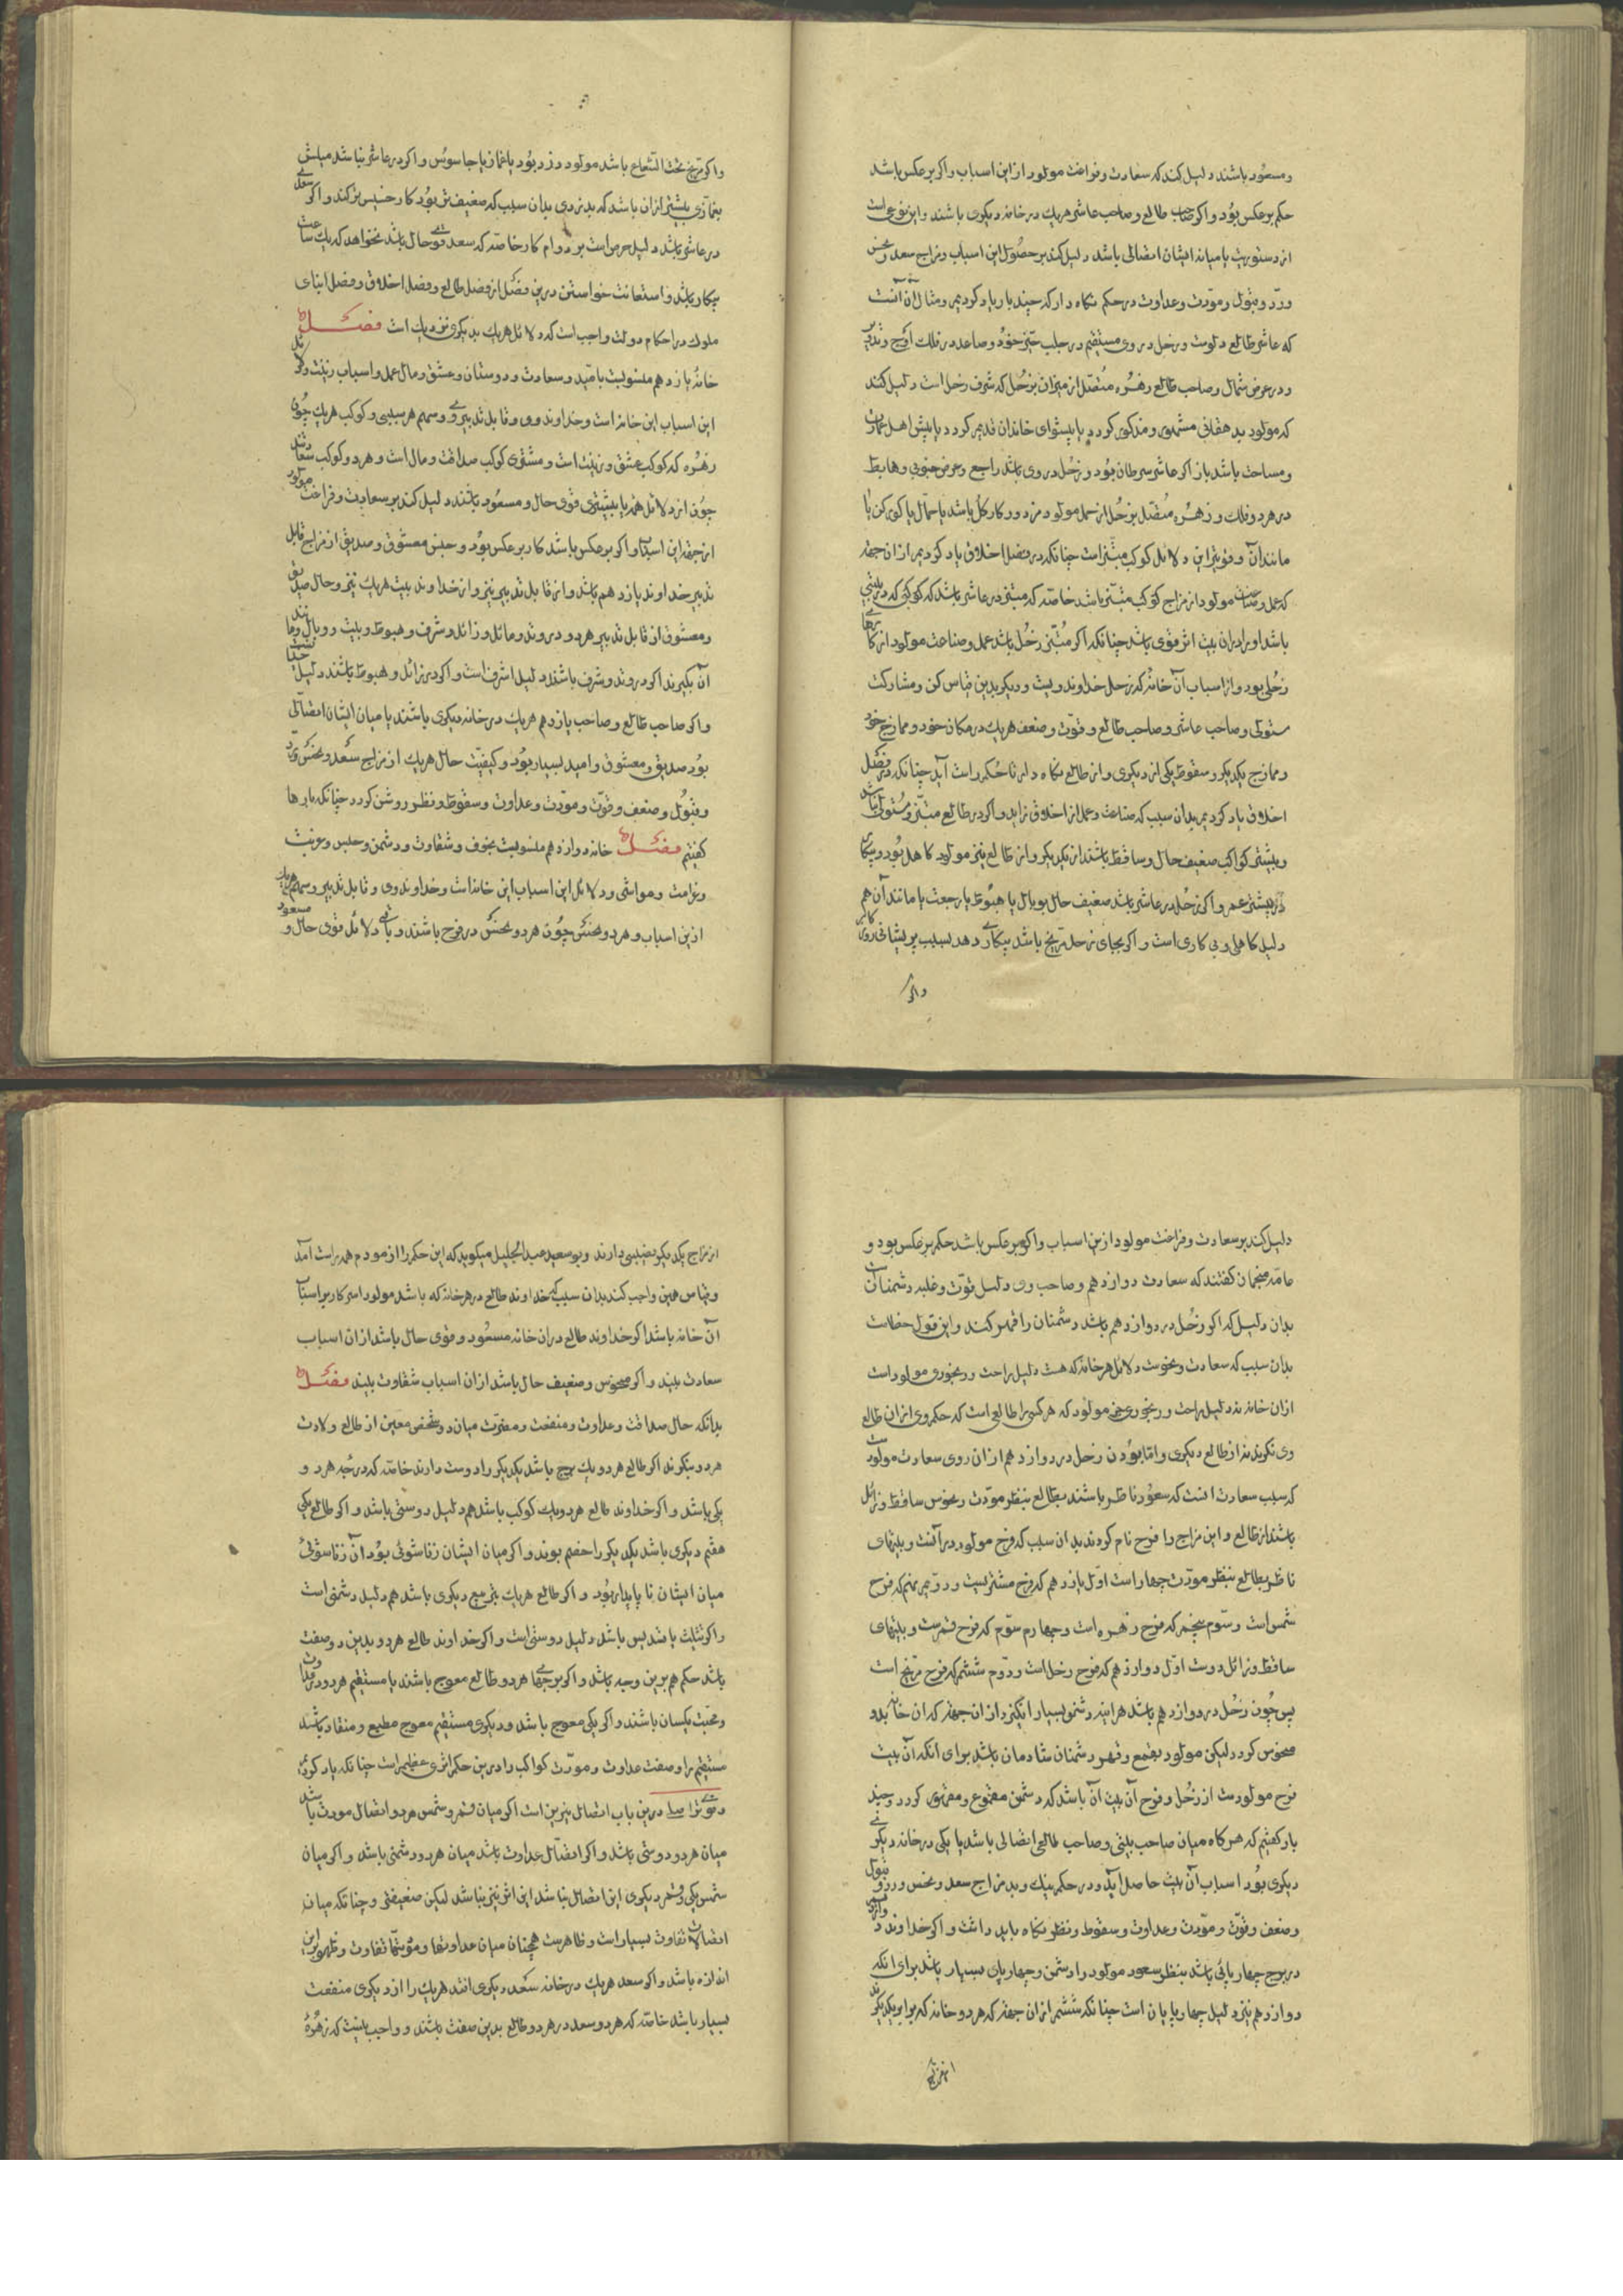 ومسعود باشند دلیل کند که سعادت وفراخت مولود از این اسباب واکر برعکس باشد
حکم برعکس بود واکر صاحب طالع وصاحب عاشر هریك در خانه دیکری باشند واین نوعی است
از دستوریت یا میانه ایشان اتصالی باشد دلیل کند بر حصول این اسباب ومزاج سعد ونحس
وردّ وقبول ومودّت وعداوت در حکم نکاه دار که چند بار یاد کردیم ومثال آن آنست
که عاشر طالع دلوست وزحل در وی مستقیم در جلب حیّز خود وصاعد در فلك اوج وتدویر
ودر عرض شمال وصاحب طالع وزهره متصل از میزان بزحل که شرف زحل است دلیل کند
که مولود بدهقانی مشهور ومذکور کردد یا پیشوای خاندان قدیم کردد یا پیش اهل عمارت
ومساحت باشد باز اکر عاشر سرطان بود وزحل در وی باشد راجع وعرض جنوبی وهابط
در هر دو فلك وزهره متصل بزحل از حمل مولود مزدور وکارکل باشد یا حمّال یا کورکن یا
مانند آن وقویترین دلائل کوکب مبتز است چنانکه در فصل اخلاق یاد کردیم از ان جهة
که عمل وصناعت مولود از مزاج کوکب مبتز باشد خاصّه که مبتز در عاشر باشد که کوکبی که در بیتی
باشد او را در ان بیت اثر قوی باشد چنانکه اکر مبتز زحل باشد عمل وصناعت مولود از کارها
زحلی بود واز اسباب آن خانه که زحل خداوند ویست ودیکر بدین قیاس کن ومشارکت
مستولی وصاحب عاشر وصاحب طالع وقوّت وضعف هریك در مکان خود وممازج خود
وممازج یکدیکر وسقوط یکی از دیکری واز طالع نکاه دار تا حکم راست آید چنانکه در فصل
اخلاق یاد کردیم بدان سبب که صناعت وعمل از اخلاق زاید واکر در طالع مبتز ومستولی باشد
وبیشتر کواکب ضعیف حال وساقط باشند از یکدیکر واز طالع نیز مولود کاهل بود وبیکار
در بیشتر عمر واکر زحل در عاشر باشد ضعیف حال بوبال یا هبوط یا رجعت یا مانند آن هم
دلیل کاهلی وبی کاری است واکر بجای زحل مرّیخ باشد بیکاری دهد بسبب پریشانی روی کار
واکر
واکر مریخ تحت الشّعاع باشد مولود دزد بود یا غمّاز یا جاسوس واکر در عاشر نباشد میلش
بغمّازی بیشتر ازان باشد که بدزدی بدان سبب که ضعیف تر بود کار خسیس تر کند واکر سعدی
در عاشر باشد دلیل حرص است بر دوام کار خاصّه که سعد قوی حال باشد نخواهد که یك ساعت
بیکار باشد واستعانت خواستن درین فصل از فصل طالع وفصل اخلاق وفصل ابنای
ملوك در احکام دولت واجب است که دلائل هریك بدیکری نزدیك است فصل
خانه یازدهم منسوبست بامید وسعادت ودوستان وعشق ومال عمل واسباب زینت ودلائل
این اسباب این خانه است وخداوند وی وقابل تدبیر وی وسهم هر سببی وکوکب هریك چون
زهره که کوکب عشق وزینت است ومشتری کوکب صداقت ومال است وهر دو کوکب سعادتند
چون از دلائل همه یا بیشتری قوی حال ومسعود باشند دلیل کند بر سعادت وفراخت مولود
از جهة این اسباب واکر برعکس باشد کار برعکس بود وجنس معشوق وصدیق از مزاج قابل
تدبیر خداوند یازدهم باشد واز قابل تدبیر نیز واز خداوند بیت هریك نیز وحال صدیق
ومعشوق از قابل تدبیر هر دو در وتد ومائل وزائل وشرف وهبوط وبیت ووبال ومانند
آن بکیرند اکر در وتد وشرف باشند دلیل اشرف است واکر در زائل وهبوط باشند دلیل خسّت
واکر صاحب طالع وصاحب یازدهم هریك در خانه دیکری باشند یا میان ایشان اتصالی
بود صدیق ومعشوق وامید بسیار بود وکیفیّت حال هریك از مزاج سعد ونحس وردّ
وقبول وضعف وقوّت ومودّت وعداوت وسقوط ونظر روشن کردد چنانکه بارها
کفتیم فصل خانه دوازدهم منسوبست بخوف وشقاوت ودشمن وحبس وغربت
وغرامت ومواشی ودلائل این اسباب این خانه است وخداوند وی وقابل تدبیر وسهم هریك
ازین اسباب وهر دو نحس چون هر دو نحس در فرح باشند وباقی دلائل قوی حال ومسعود
دلیل کند بر سعادت وفراخت مولود ازین اسباب واکر برعکس باشد حکم برعکس بود و
عامّه منجمان کفتند که سعادت دوازدهم وصاحب وی دلیل قوّت وغلبه دشمنانست
بدان دلیل که اکر زحل در دوازدهم باشد دشمنان را قهر کند واین قول خطاست
بدان سبب که سعادت ونحوست دلائل هر خانه که هست دلیل راحت ورنجوری مولود است
ازان خانه نه دلیل راحت ورنجوری غیر مولود که هر کسی را طالعی است که حکم وی ازان طالع
وی نکرند نه از طالع دیکری وامّا بودن زحل در دوازدهم ازان روی سعادت مولودست
که سبب سعادت آنست که سعود ناظر باشند بطالع بنظر مودّت ونحوس ساقط وزائل
باشند از طالع واین مزاج را فرح نام کردند بدان سبب که فرح مولود در آنست وبیتهای
ناظر بطالع بنظر مودّت چهار است اوّل یازدهم که فرح مشتریست ودویم نهم که فرح
شمس است وسوّم پنجم که فرح زهره است وچهارم سوّم که فرح قمرست وبیتهای
ساقط وزائل دوست اوّل دوازدهم که فرح زحل است ودوّم ششم که فرح مرّیخ است
پس چون زحل در دوازدهم باشد هراینه دشمنی بسیار انکیزد ازان جهة که ان خانه بدو
منحوس کردد لیکن مولود بقمع وقهر دشمنان شادمان باشد برای انکه آن بیت
فرح مولودست از زحل وفرح آن بیت آن باشد که دشمن مقموع ومقهور کردد وچند
بار کفتیم که هرکاه میان صاحب بیتی وصاحب طالع اتصالی باشد یا یکی در خانه دیکری
دیکری بود اسباب آن بیت حاصل آید ودر حکم نیك وبد مزاج سعد ونحس وردّ وقبول
وضعف وقوّت ومودّت وعداوت وسقوط ونظر نکاه باید داشت واکر خداوند دوازدهم
در برج چهارپائی باشد بنظر سعود مولود را دشمن وچهارپای بسیار باشد برای انکه
دوازدهم نیز دلیل چهارپایان است چنانکه ششم ازان جهة که هر دو خانه که برابر یکدیکرند
از مزاج
از مزاج یکدیکر نصیبی دارند وبوسعید عبد الجلیل میکوید که این حکم را ازمودم همه راست آمد
وقیاس همین واجب کند بدان سبب که خداوند طالع در هر خانه که باشد مولود اسیر کار بر اسباب
آن خانه باشد اکر خداوند طالع دران خانه مسعود وقوی حال باشد ازان اسباب
سعادت بیند واکر منحوس وضعیف حال باشد ازان اسباب شقاوت بیند فصل
بدانکه حال صداقت وعداوت ومنفعت ومضرّت میان دو شخص معین از طالع ولادت
هر دو بنکرند اکر طالع هر دو یك برج باشد یکدیکر را دوست دارند خاصّه که درجه هر دو
یکی باشد واکر خداوند طالع هر دو یك کوکب باشد هم دلیل دوستی باشد واکر طالع یکی
هفتم دیکری باشد یکدیکر را خصم بوند واکر میان ایشان زناشوئی بود آن زناشوئی
میان ایشان ناپایدار بود واکر طالع هریك بتربیع دیکری باشد هم دلیل دشمنی است
واکر تثلیث یا تسدیس باشد دلیل دوستی است واکر خداوند طالع هر دو بدین دو صفت
باشد حکم هم برین وجه باشد واکر برجهای هر دو طالع معوج باشند یا مستقیم هر دو در عداوت
ومحبت یکسان باشند واکر یکی معوج باشد ودیکری مستقیم معوج مطیع ومنقاد باشد
مستقیم را وصفت عداوت ومودّت کواکب را درین حکم اثری عظیم است چنانکه یاد کردیم
وقوی‌تر اصلی درین باب اتصال نیّرین است اکر میان قمر وشمس هر دو اتصال مودت باشد
میان هر دو دوستی باشد واکر اتصال عداوت باشد میان هر دو دشمنی باشد واکر میان
شمس یکی وقمر دیکری این اتصال نباشد این اثر نیز نباشد لیکن ضعیفتر وچنانکه میان
اتصالات تفاوت بسیار است وظاهرست همچنان میان عداوتها ومودّتها تفاوت وظهور این
اندازه باشد واکر سعد هریك در خانه سعد دیکری افتد هریك را از دیکری منفعت
بسیار باشد خاصّه که هر دو سعد در هر دو طالع بدین صفت باشند وواجب نیست که زهره